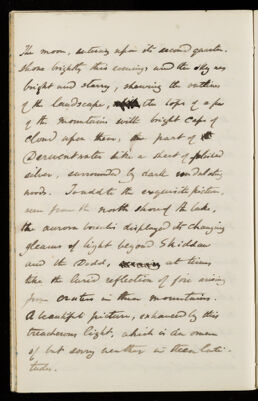 The moon, entering upon its second quarter,
shone brightly this evening and the sky was
bright and starry, shewing the outlines
of the landscape, the tops of a few
of the mountains with bright caps of
cloud upon them, the part of
Derwentwater like a sheet of polished
silver, surrounded by dark
woods. To add to the exquisite picture,
seen from the north shore of the lake,
the aurora borealis displayed its changing
gleams of light beyond Skiddaw
and the Dodd, at times
like the lurid reflection of fire arising
from craters in those mountains.
A beautiful picture, enhanced by this
treacherous light, which is an omen
of but sorry weather in these lati-
tudes.